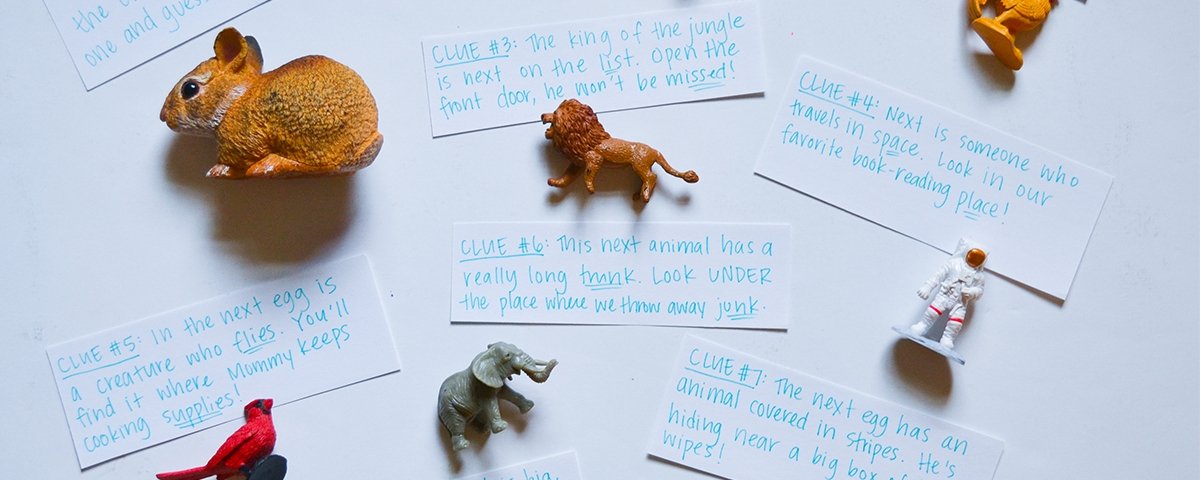 one and guess
CLUE #3: The king of the jungle
is next on the list. Open the
front door, he won't be missed!
CLUE #4: Next is someone who
travels in space. Look in our
favorite book-reading place!
CLUE #5: In the next egg is
a creature who flies. You'll
find it where Mommy keeps
cooking supplies!
CLUE #6: This next animal has a
really long trunk. Look UNDER
the place where we throw away junk.
CLUE #7: The next egg has an
animal covered in stripes. He's
hiding near a big box of
wipes!
is big,